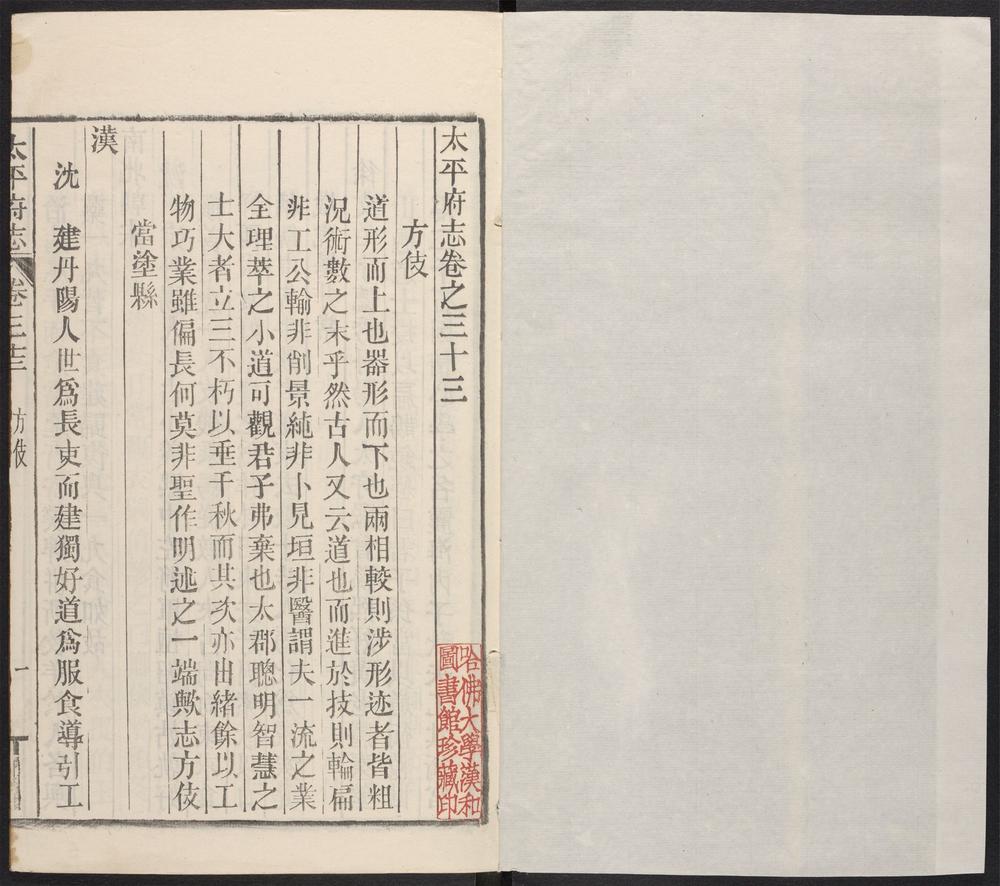 太平府志卷之三十三
方伎
道形而上也器形而下也兩相較則涉形迹者皆粗
況術數之末乎然古人又云道也而進於技則輪扁
非工公輸非削景純非卜見垣非醫謂夫一流之業
全理萃之小道可觀君子弗棄也太郡聰明智慧之
士大者立三不朽以垂千秋而其次亦出緒餘以工
物巧業雖偏長何莫非聖作明述之一端歟志方伎
當塗縣
漢
沈　建丹陽人世爲長吏而建獨好道爲服食導引工
太平府志 卷三十三 方伎 一
哈佛大學漢和
圖書館珍藏印